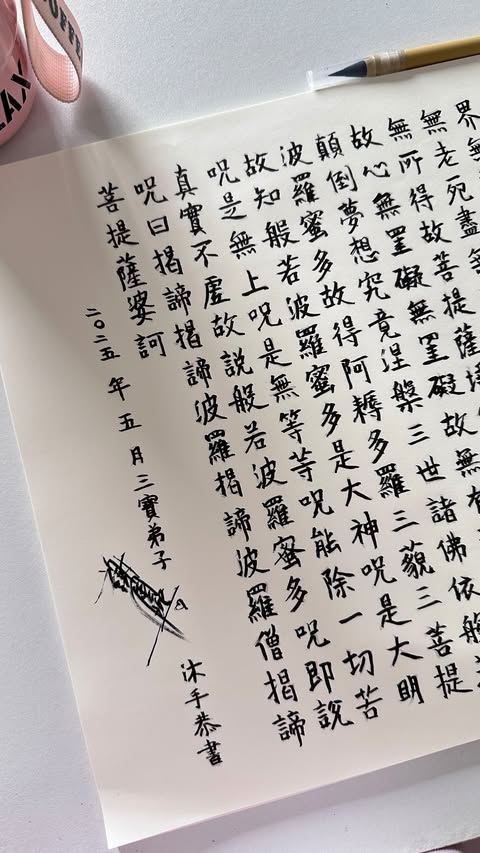 界無
無老死盡
無所得故菩提薩
故心無罣礙無罣礙故無有
顛倒夢想究竟涅槃三世諸佛依般
波羅蜜多故得阿耨多羅三藐三菩提
故知般若波羅蜜多是大神咒是大明
呪是無上呪是無等等呪能除一切苦
真實不虛故說般若波羅蜜多呪即說
呪曰揭諦揭諦波羅揭諦波羅僧揭諦
菩提薩婆訶
二〇二五年五月三寶弟子
沐手恭書
OFFE
AX